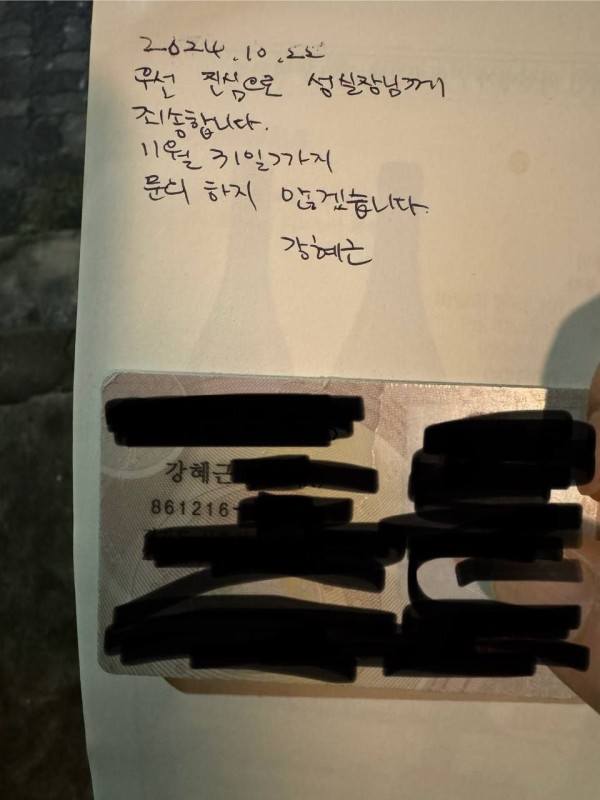 2024.10.22
우선 진심으로 성실장님께
죄송합니다.
11월 31일까지
문의 하지 않겠습니다.
강혜근
강혜근
861216-